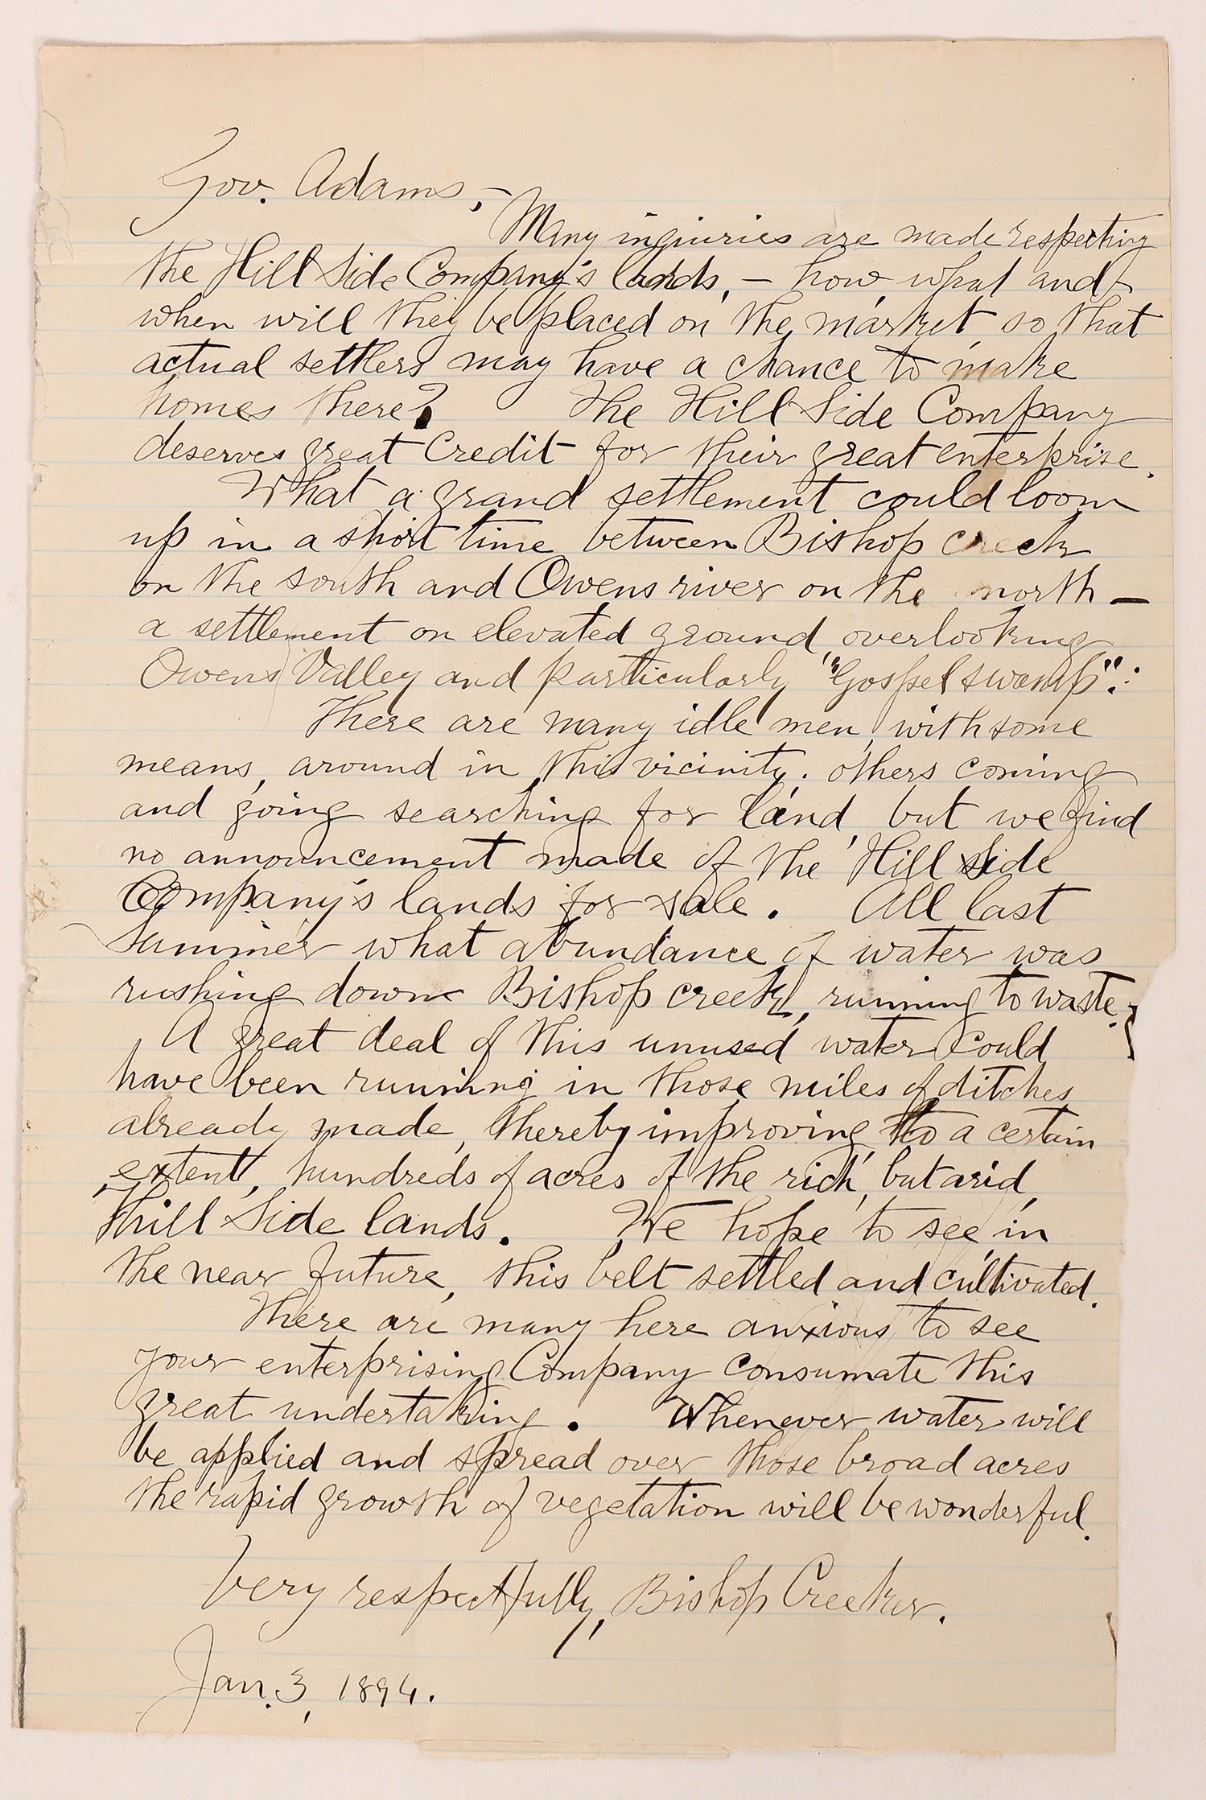 Gov. Adams,-
Many inquiries are made respecting
the Hill Side Company's lands, - how, what and
when will they be placed on the market so that
actual settlers may have a chance to make
homes there? The Hill Side Company
deserves great Credit for their great enterprise.
What a grand settlement could loom
up in a short time between Bishop creek
on the south and Owens river on the north —
a settlement on elevated ground overlooking
Owens Valley and particularly "Gospel swamp":
There are many idle men, with some
means, around in this vicinity. others coming
and going searching for land, but we find
no announcement made of the Hill Side
Company's lands for sale. All last
Summer what abundance of water was
rushing down Bishop creek, running to waste.
A great deal of this unused water could
have been running in those miles of ditches
already made, thereby improving to a certain
extent, hundreds of acres of the rich, but arid,
Hill Side lands. We hope to see in
the near future, this belt settled and cultivated.
There are many here anxious to see
your enterprising Company consumate this
great undertaking. Whenever water will
be applied and spread over those broad acres
the rapid growth of vegetation will be wonderful.
Very respectfully, Bishop Creeker.
Jan. 3, 1894.